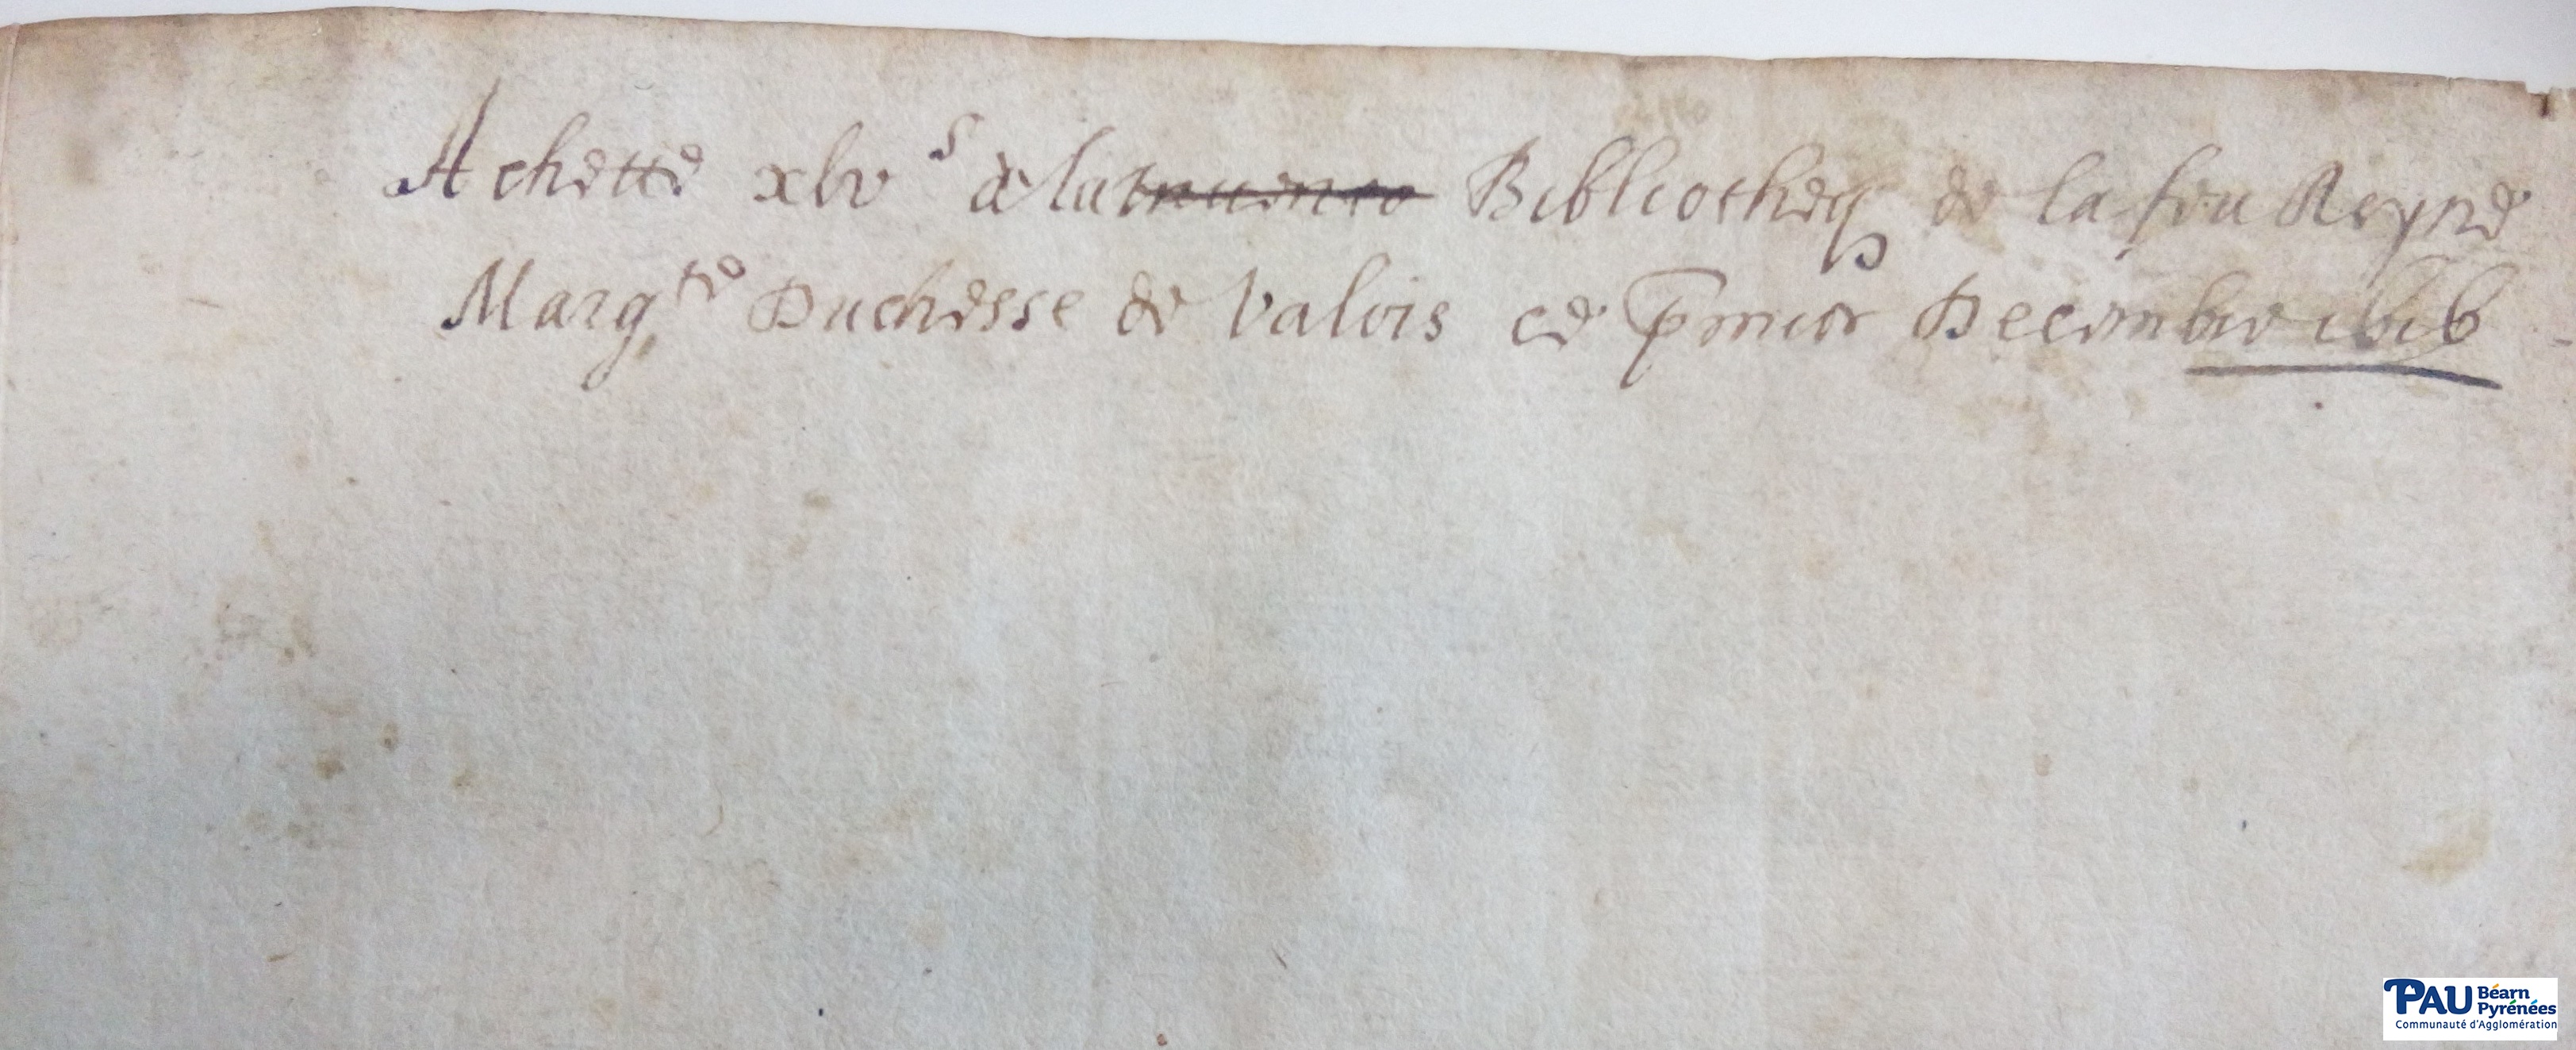 Achette xlv s à la Bibliotheq de la feu Reyne
Marg.te Duchesse de Valois ce p̄mier Decembre 1616
PAU Béarn
Pyrénées
Communauté d'Agglomération